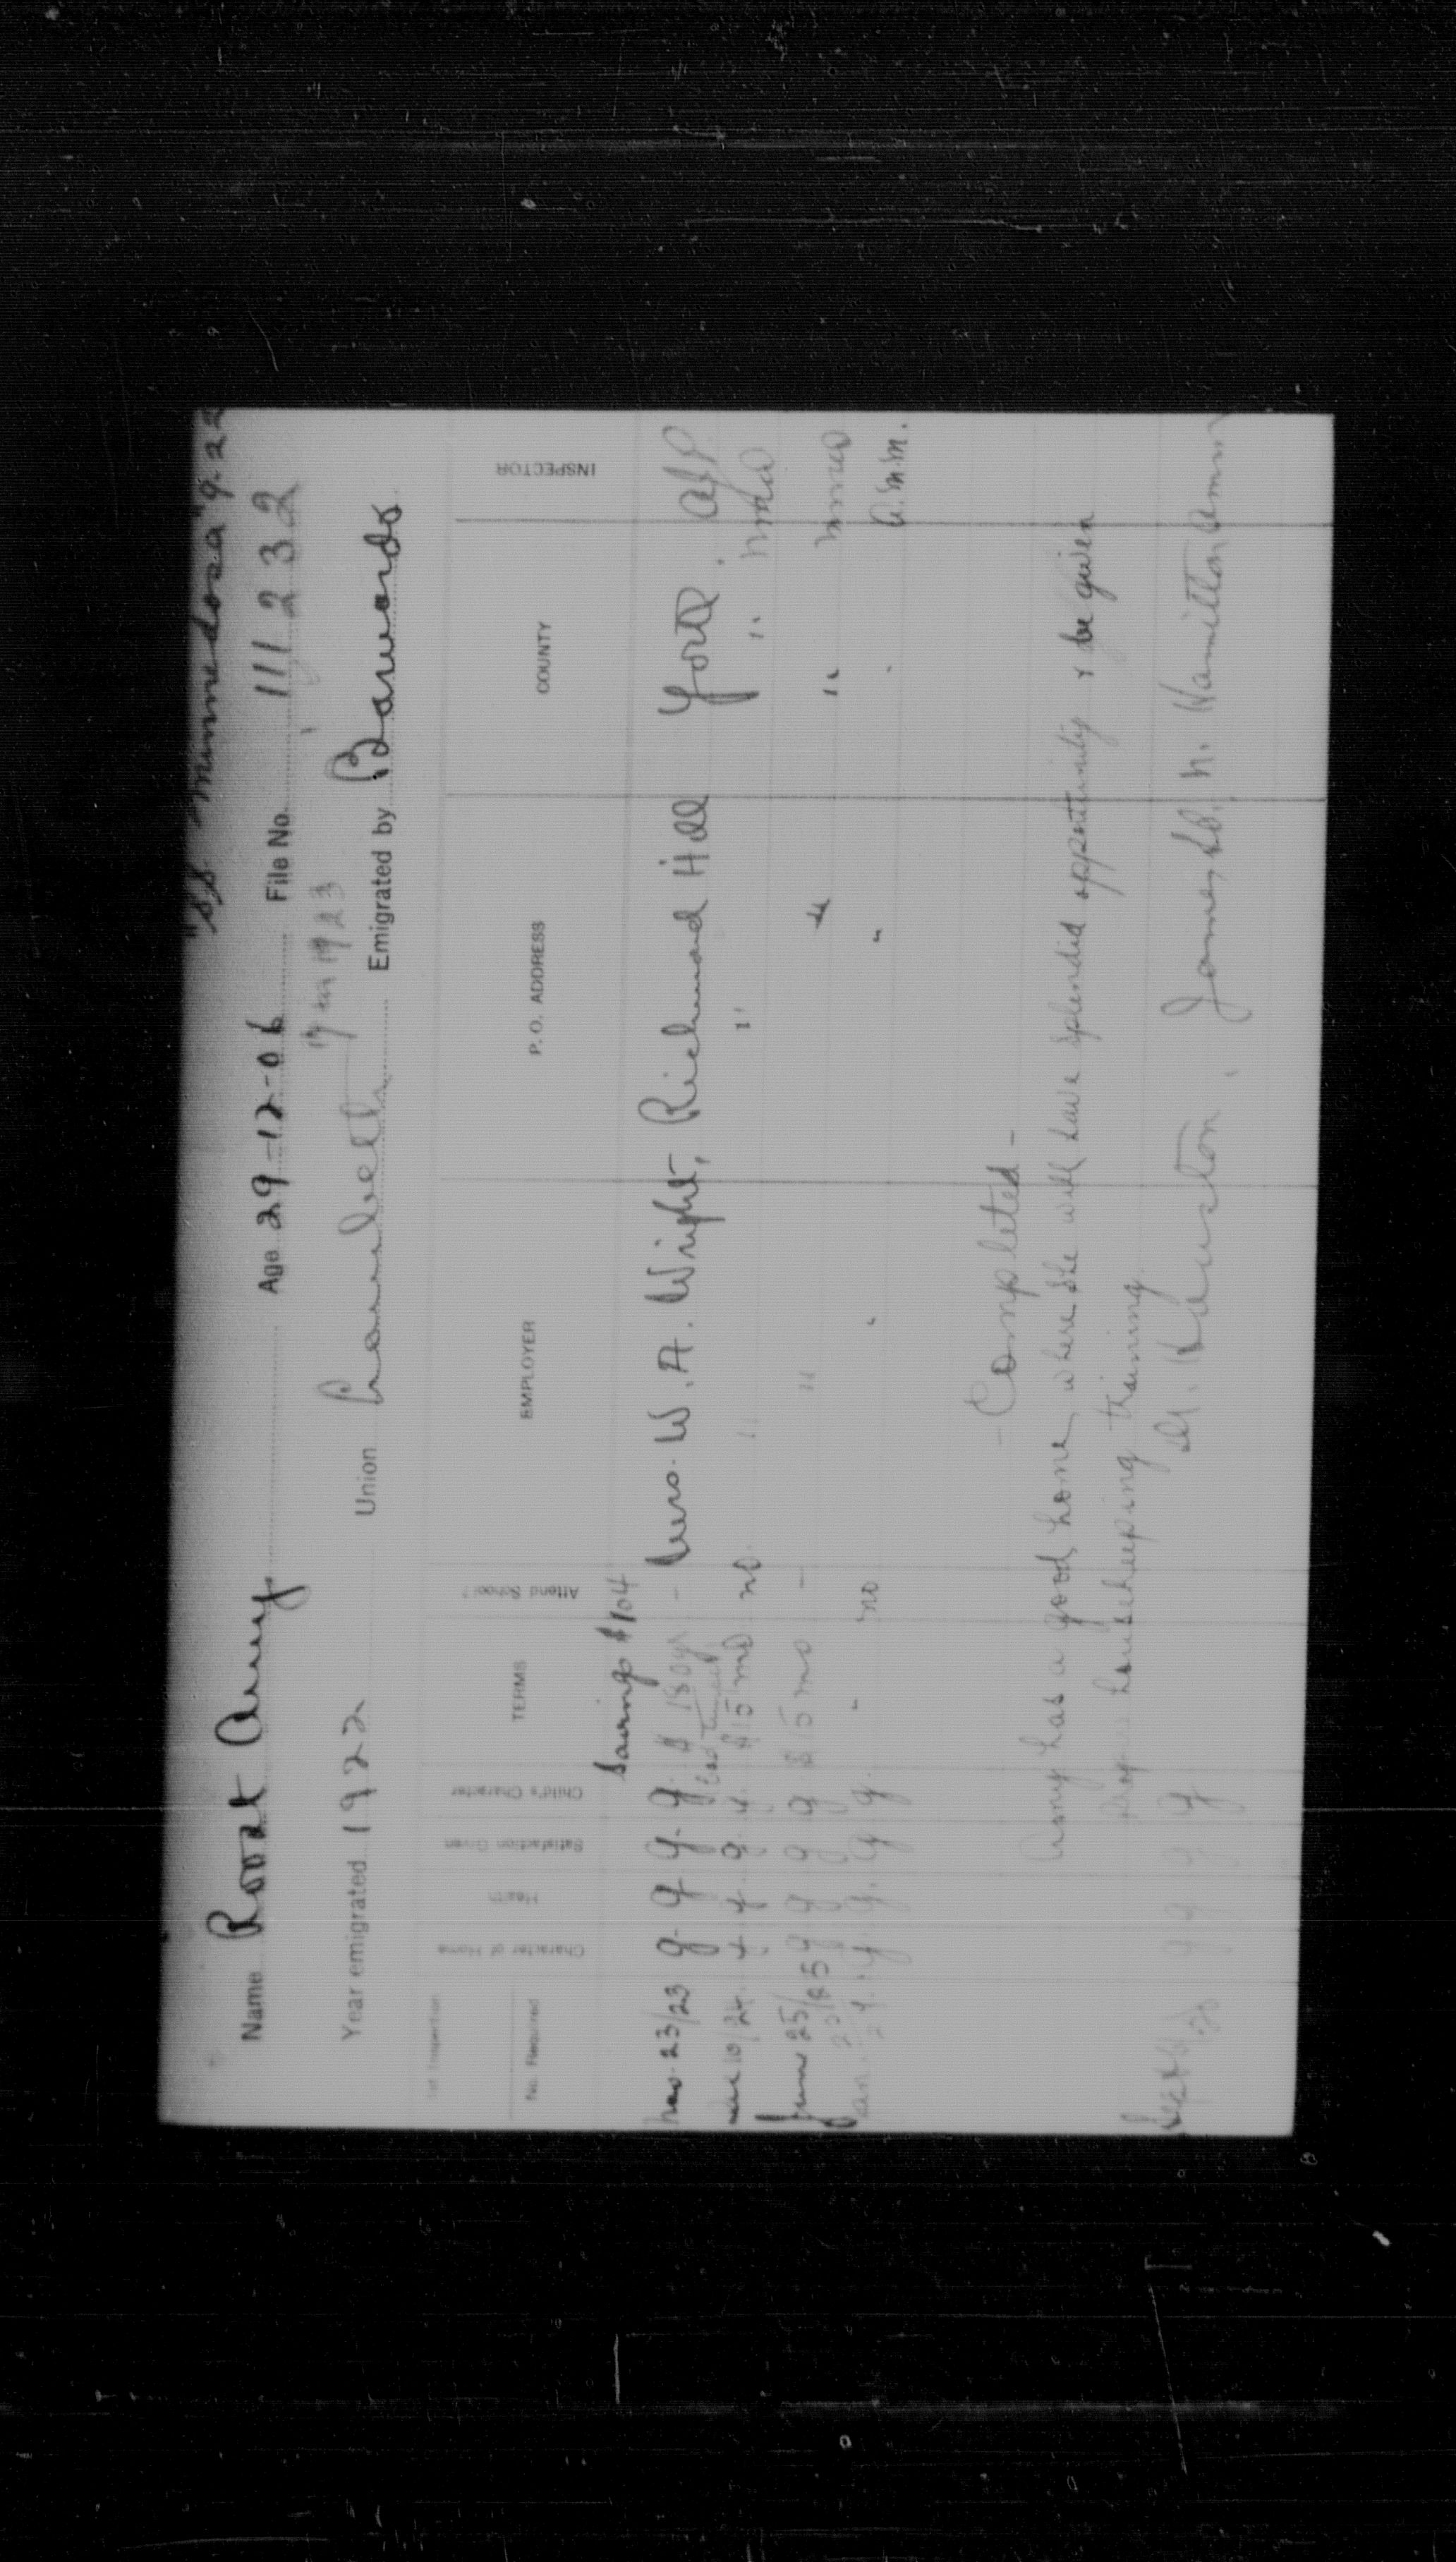 "SS Minnedosa" 9.22
Name Root Amy Age 29-12-06 File No. 111232
17 in 1923
Year emigrated 1922 Union Camberwell Emigrated by Barnardo
1st Inspection
No. Required Character of Home Health Satisfaction Given Child's Character TERMS Attend School? EMPLOYER P. O. ADDRESS COUNTY INSPECTOR
Saving $104
Nov. 23/23 g. g g. g. $180 yr - Mrs. W. A. Wright, Richmond Hill York.
Dec 10/24 $15 mo no. " " "
June 25/25 g g g g $15 mo - " " "
Jan. g. g. g g. " no " " A.M.M.
- Completed -
Amy has a good home, where she will have splendid opportunity & be given
housekeeping training.
Sept g g g g James St. N. Hamilton